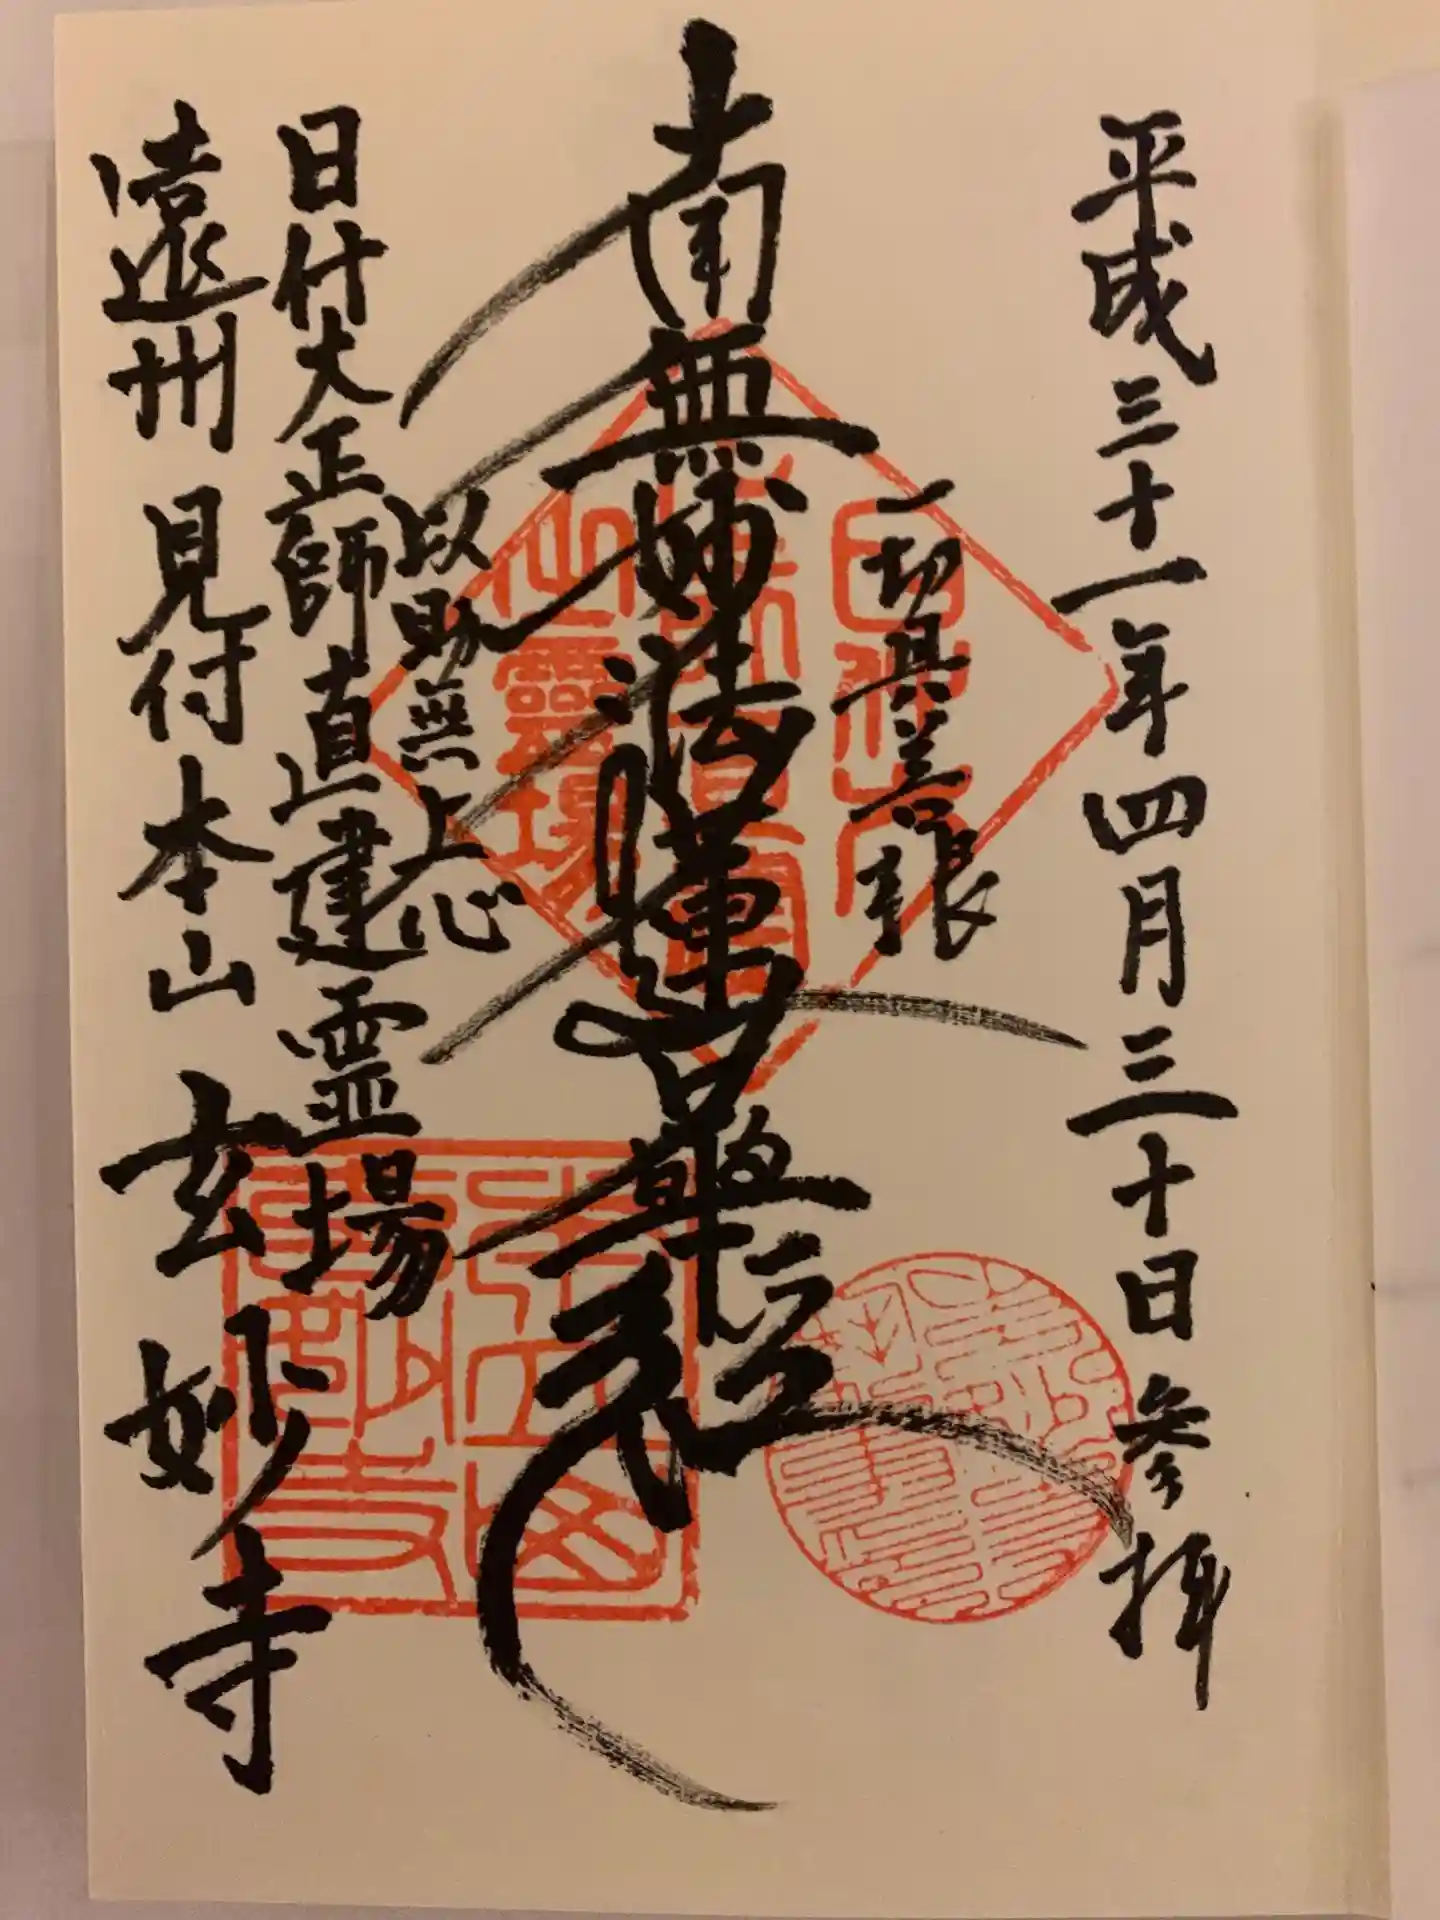 平成三十一年四月三十日参拝
一切具善根
南無妙法蓮華経
以助無上心
日什大正師直建霊場
遠州 見付 本山 玄妙寺